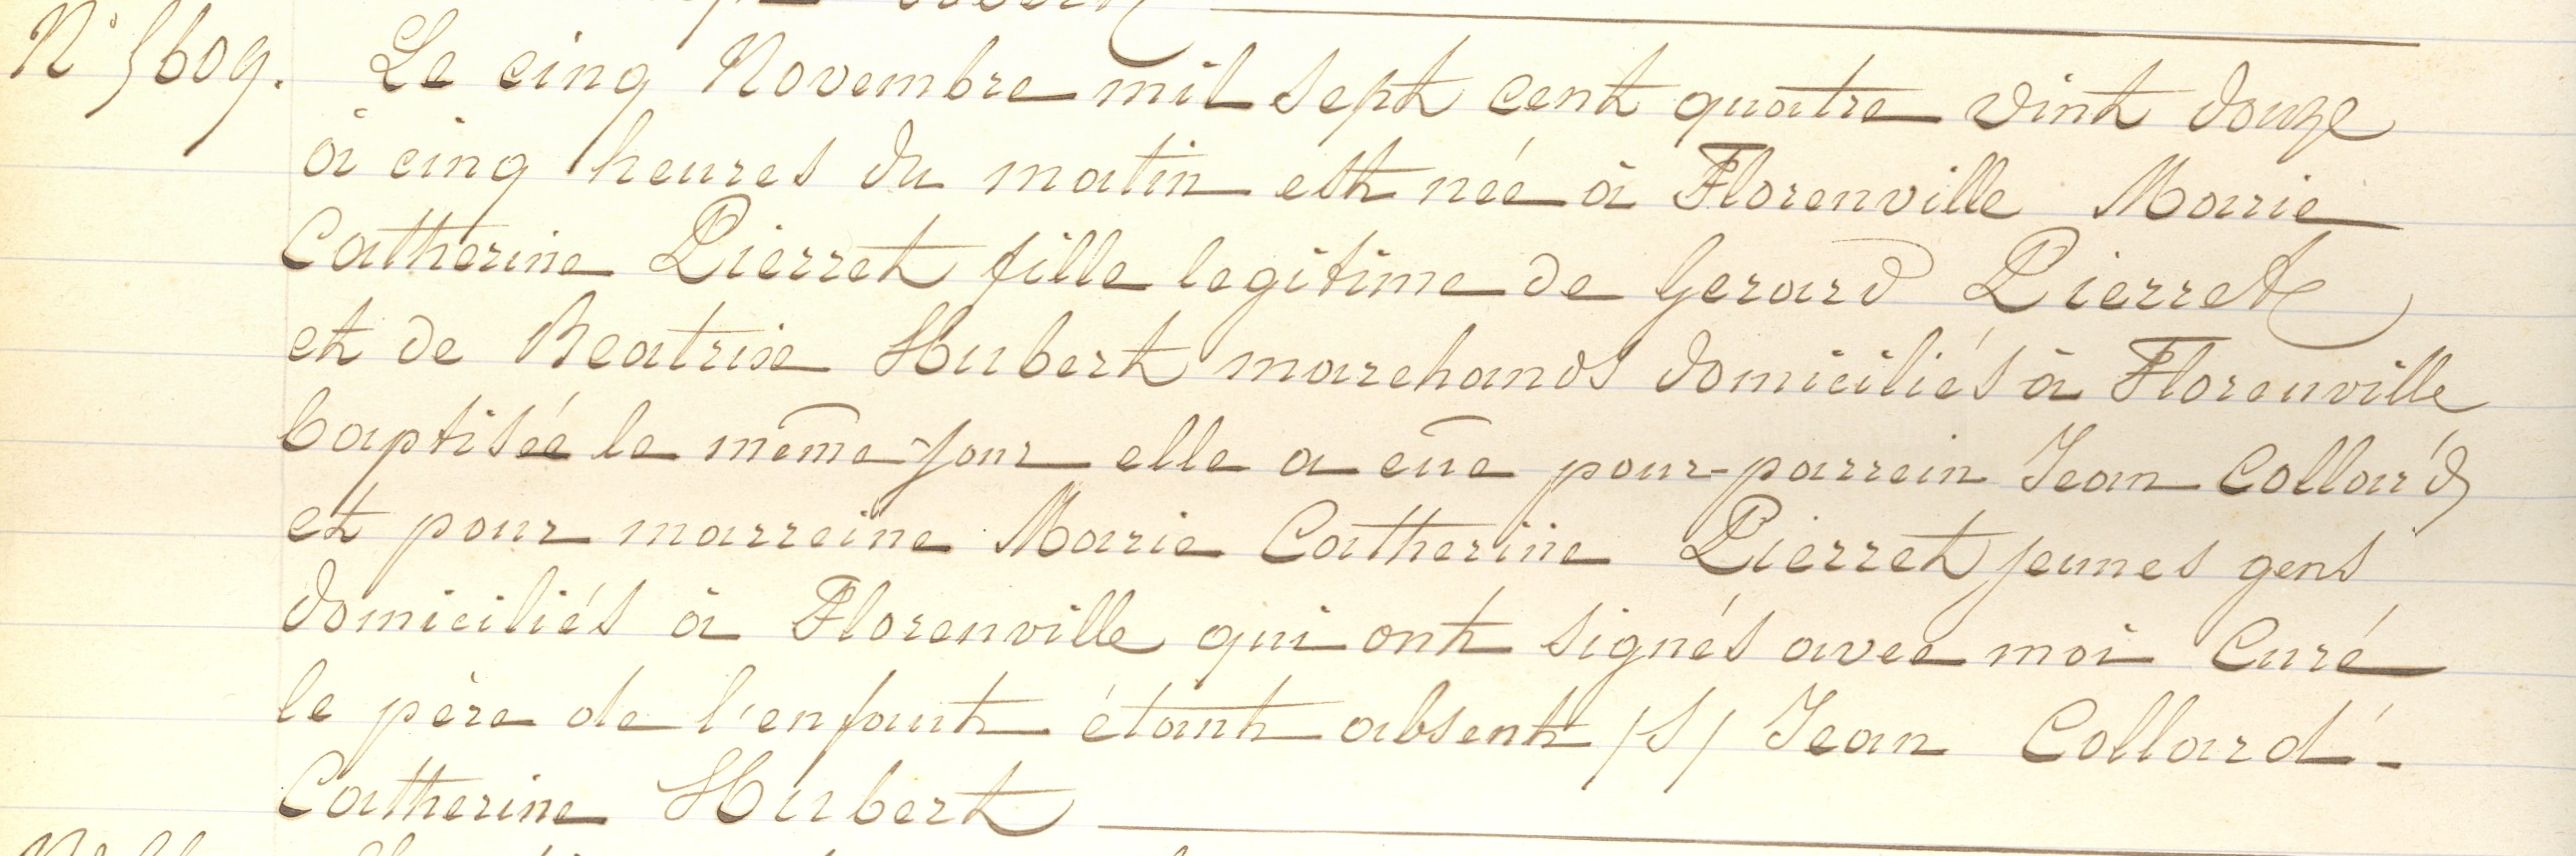 N° 5609. Le cinq Novembre mil sept cent quatre vint douze
à cinq heures du matin est née à Florenville Marie
Catherine Pierret fille legitime de Gerard Pierret
et de Beatrise Hubert marchands domiciliés à Florenville
baptisée le même jour elle a eüe pour parrein Jean Collard
et pour marreine Marie Catherine Pierret jeunes gens
domiciliés à Florenville qui ont signés avec moi Curé
le père de l'enfant étant absent /S/ Jean Collard -
Catherine Hubert